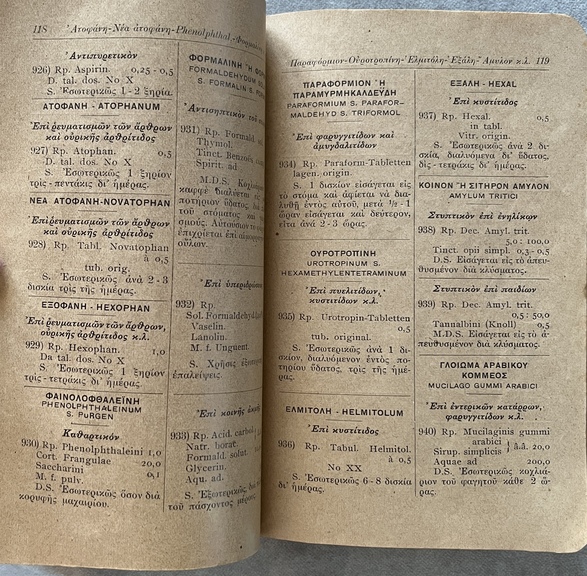 118 Ἀτοφάνη-Νέα ἀτοφάνη-Phenolphthal.-Φορμαλ
Ἀντιπυρετικόν
926) Rp. Aspirin. 0,25 - 0,5
D. tal. dos. No X
S. Ἐσωτερικῶς 1 - 2 ξηρία.
ΑΤΟΦΑΝΗ - ATOPHANUM
Ἐπὶ ῥευματισμῶν τῶν ἄρθρων
καὶ οὐρικῆς ἀρθρίτιδος
927) Rp. Atophan. 0,5
D. tal. dos. No X
S. Ἐσωτερικῶς 1 ξηρίον
τρὶς - πεντάκις δι' ἡμέρας.
ΝΕΑ ΑΤΟΦΑΝΗ-NOVATOPHAN
Ἐπὶ ῥευματισμῶν τῶν ἄρθρων
καὶ οὐρικῆς ἀρθρίτιδος
928) Rp. Tabl. Novatophan
à 0,5
tub. orig.
S. Ἐσωτερικῶς ἀνὰ 2 - 3
δισκία τρὶς τῆς ἡμέρας.
ΕΞΟΦΑΝΗ - HEXOPHAN
Ἐπὶ ῥευματισμῶν τῶν ἄρθρων,
οὐρικῆς ἀρθρίτιδος κ.λ.
929) Rp. Hexophan. 1,0
Da tal. dos. No X
S. Ἐσωτερικῶς 1 ξηρίον
τρὶς - τετράκις δι' ἡμέρας.
ΦΑΙΝΟΛΟΦΘΑΛΕΪΝΗ
PHENOLPHTHALEINUM
S. PURGEN
Καθαρτικόν
930) Rp. Phenolphthaleini 1,0
Cort. Frangulae 20,0
Saccharini 0,1
M. f. pulv.
D.S. Ἐσωτερικῶς ὅσον διὰ
κορυφῆς μαχαιρίου.
ΦΟΡΜΑΛΙΝΗ Ἢ ΦΟΡ
FORMALDEHYDUM S
S. FORMALIN S. FO
Ἀντισηπτικὸν τοῦ
931) Rp. Formald.
Thymol.
Tinct. Benzoës
Spirit. ad
M.D.S.
καφρὲ διαλύεται εἰς
ποτήριον ὕδατος, διὰ
τοῦ στόματος καὶ
σμούς.
ἐπιχρίεται ἐπὶ
οὔλων.
Ἐπὶ ὑπεριδρώσεως
932) Rp.
Sol. Formaldehydi
Vaselin.
Lanolin.
M. f. Unguent.
S. Χρῆσις ἐξωτερικὴ
ἐπαλείψεις.
Ἐπὶ κοινῆς
933) Rp. Acid. carbol
Natr. borat.
Formald. solut.
Glycerin.
Aqu. ad
S. Ἐξωτερικῶς, διὰ
τοῦ πάσχοντος μέρους.
Παραφόρμιον-Οὐροτροπίνη-Ἑλμιτόλη-Ἑξάλη-Ἄμυλον κ.λ. 119
ΠΑΡΑΦΟΡΜΙΟΝ Ἢ
ΠΑΡΑΜΥΡΜΗΚΑΛΔΕΫΔΗ
PARAFORMIUM S. PARAFOR-
MALDEHYD S. TRIFORMOL
Ἐπὶ φαρυγγίτιδων καὶ
ἀμυγδαλίτιδων
934) Rp. Paraform-Tabletten
lagen. origin.
S. 1 δισκίον εἰσάγεται εἰς
τὸ στόμα καὶ ἀφίεται νὰ δια-
λυθῇ ἐντὸς αὐτοῦ, μετὰ ½ - 1
ὥραν εἰσάγεται καὶ δεύτερον,
εἶτα ἀνὰ 2 - 3 ὥρας.
ΟΥΡΟΤΡΟΠΙΝΗ
UROTROPINUM S.
HEXAMETHYLENTETRAMINUM
Ἐπὶ πυελιτίδων,
κυστιτίδων κ.λ.
935) Rp. Urotropin-Tabletten
0,5
tub. original.
S. Ἐσωτερικῶς ἀνὰ 1 δι-
σκίον, διαλυόμενον ἐντὸς πο-
τηρίου ὕδατος, τρὶς τῆς ἡμέ-
ρας.
ΕΛΜΙΤΟΛΗ - HELMITOLUM
Ἐπὶ κυστίτιδος
936) Rp. Tabul. Helmitol.
à 0,5
No XX
S. Ἐσωτερικῶς 6 - 8 δισκία
δι' ἡμέρας.
ΕΞΑΛΗ - HEXAL
Ἐπὶ κυστίτιδος
937) Rp. Hexal. 0,5
in tabl.
Vitr. origin.
S. Ἐσωτερικῶς ἀνὰ 2 δι-
σκία, διαλυόμενα δι' ὕδατος,
δὶς - τετράκις δι' ἡμέρας.
ΚΟΙΝΟΝ Ἢ ΣΙΤΗΡΟΝ ΑΜΥΛΟΝ
AMYLUM TRITICI
Στυπτικὸν ἐπὶ ἐνηλίκων
938) Rp. Dec. Amyl. trit.
5,0 : 100,0
Tinct. opii simpl. 0,3 - 0,5
D.S. Εἰσάγεται εἰς τὸ ἀπευ-
θυσμένον διὰ κλύσματος.
Στυπτικὸν ἐπὶ παιδίων
939) Rp. Dec. Amyl. trit.
0,5 : 50,0
Tannalbini (Knoll) 0,5
M.D.S. Εἰσάγεται εἰς τὸ ἀ-
πευθυσμένον διὰ κλύσματος.
ΓΛΟΙΩΜΑ ΑΡΑΒΙΚΟΥ
ΚΟΜΜΕΩΣ
MUCILAGO GUMMI ARABICI
Ἐπὶ ἐντερικῶν κατάρρων,
φαρυγγίτιδων κ.λ.
940) Rp. Mucilaginis gummi
arabici
Sirup. simplicis } ā.ā. 20,0
Aquae ad 200,0
D.S. Ἐσωτερικῶς κοχλιά-
ριον τοῦ φαγητοῦ κάθε 2 ὥ-
ρας.